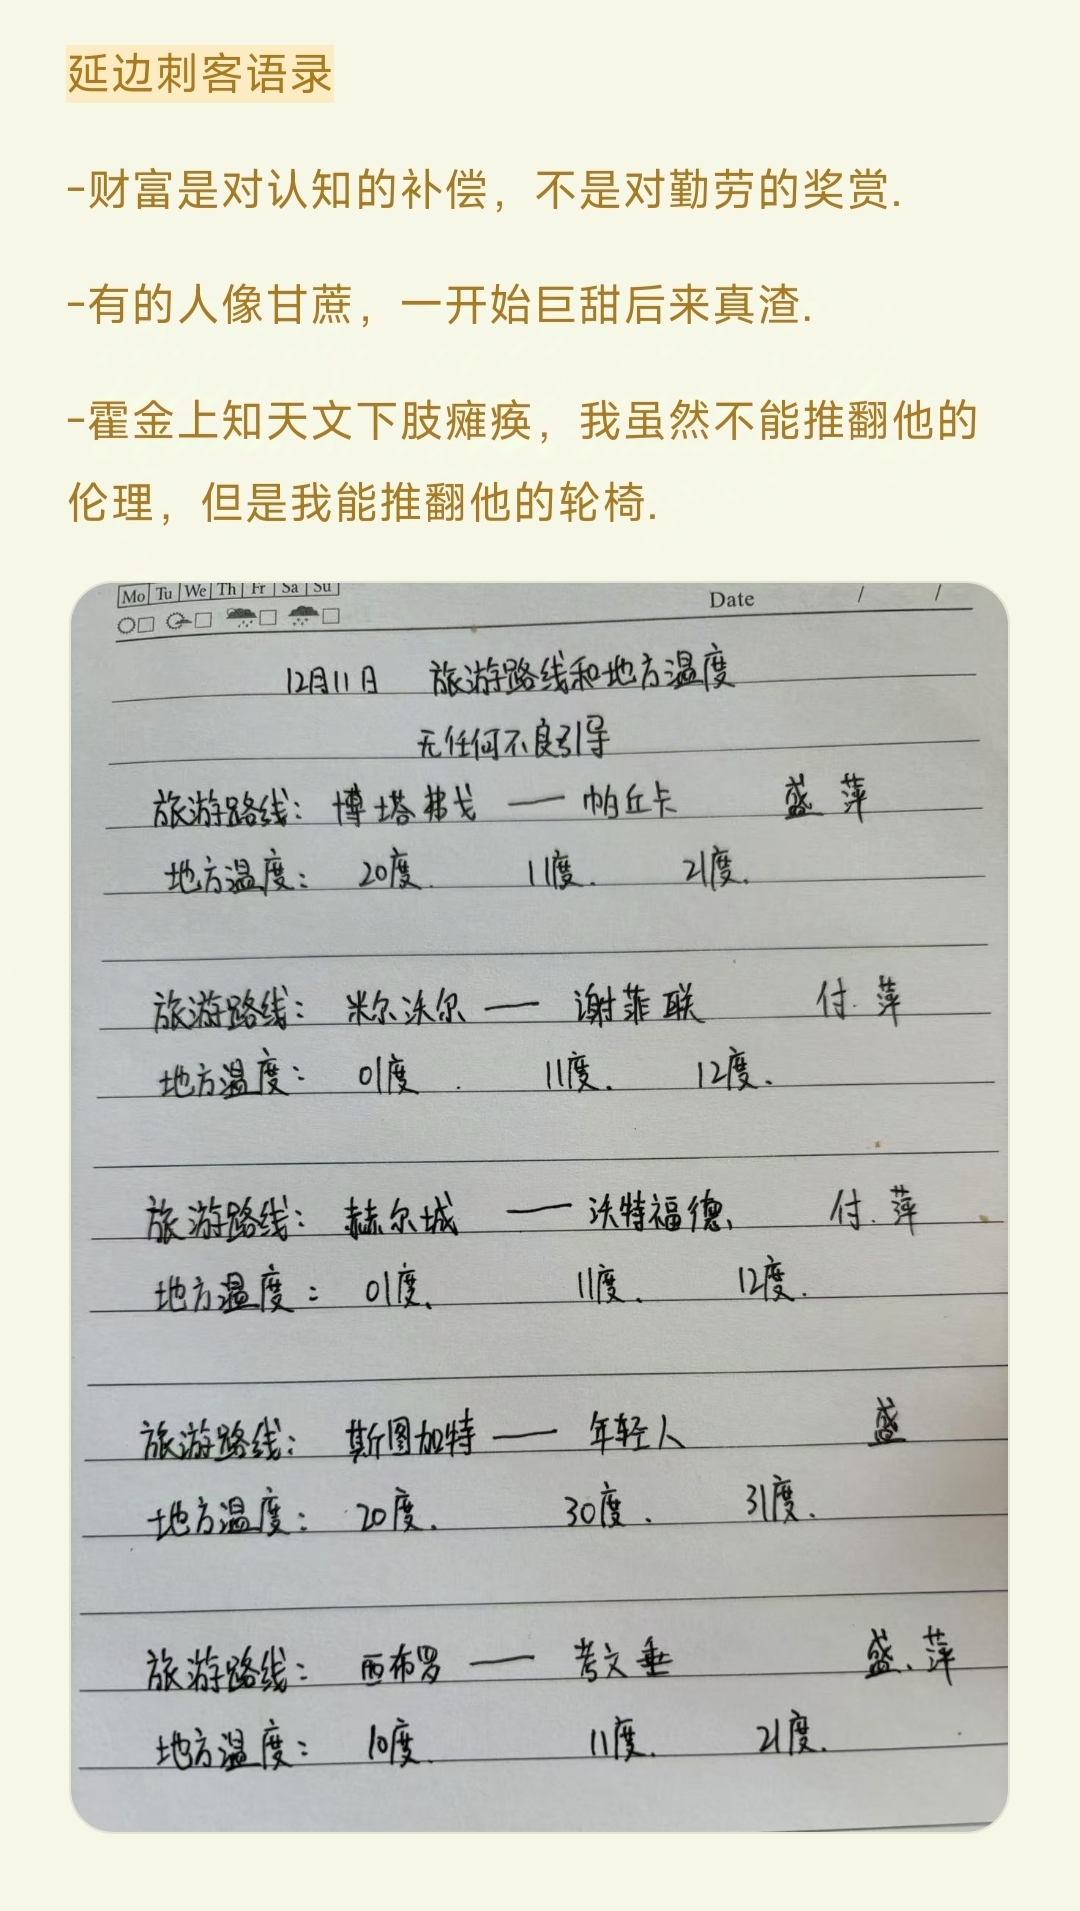 延边刺客语录
-财富是对认知的补偿，不是对勤劳的奖赏.
-有的人像甘蔗，一开始巨甜后来真渣.
-霍金上知天文下肢瘫痪，我虽然不能推翻他的
伦理，但是我能推翻他的轮椅.
Mo Tu We Th Fr Sa Su
Date / /
12月11日 旅游路线和地方温度
无任何不良引导
旅游路线：博塔弗戈 — 帕丘卡 盛 萍
地方温度：20度. 11度. 21度.
旅游路线：米尔沃尔 — 谢菲联 付. 萍
地方温度：01度. 11度. 12度.
旅游路线：赫尔城 — 沃特福德、 付. 萍
地方温度：01度、 11度. 12度.
旅游路线：斯图加特 — 年轻人 盛
地方温度：20度. 30度. 31度.
旅游路线：西布罗 — 考文垂 盛、萍
地方温度：10度. 11度. 21度.